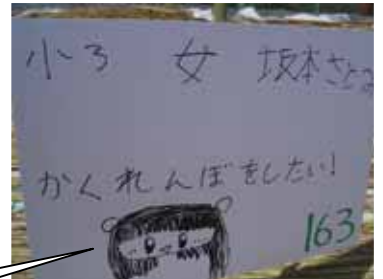 小3 女 坂本さとみ
かくれんぼをしたい!
163